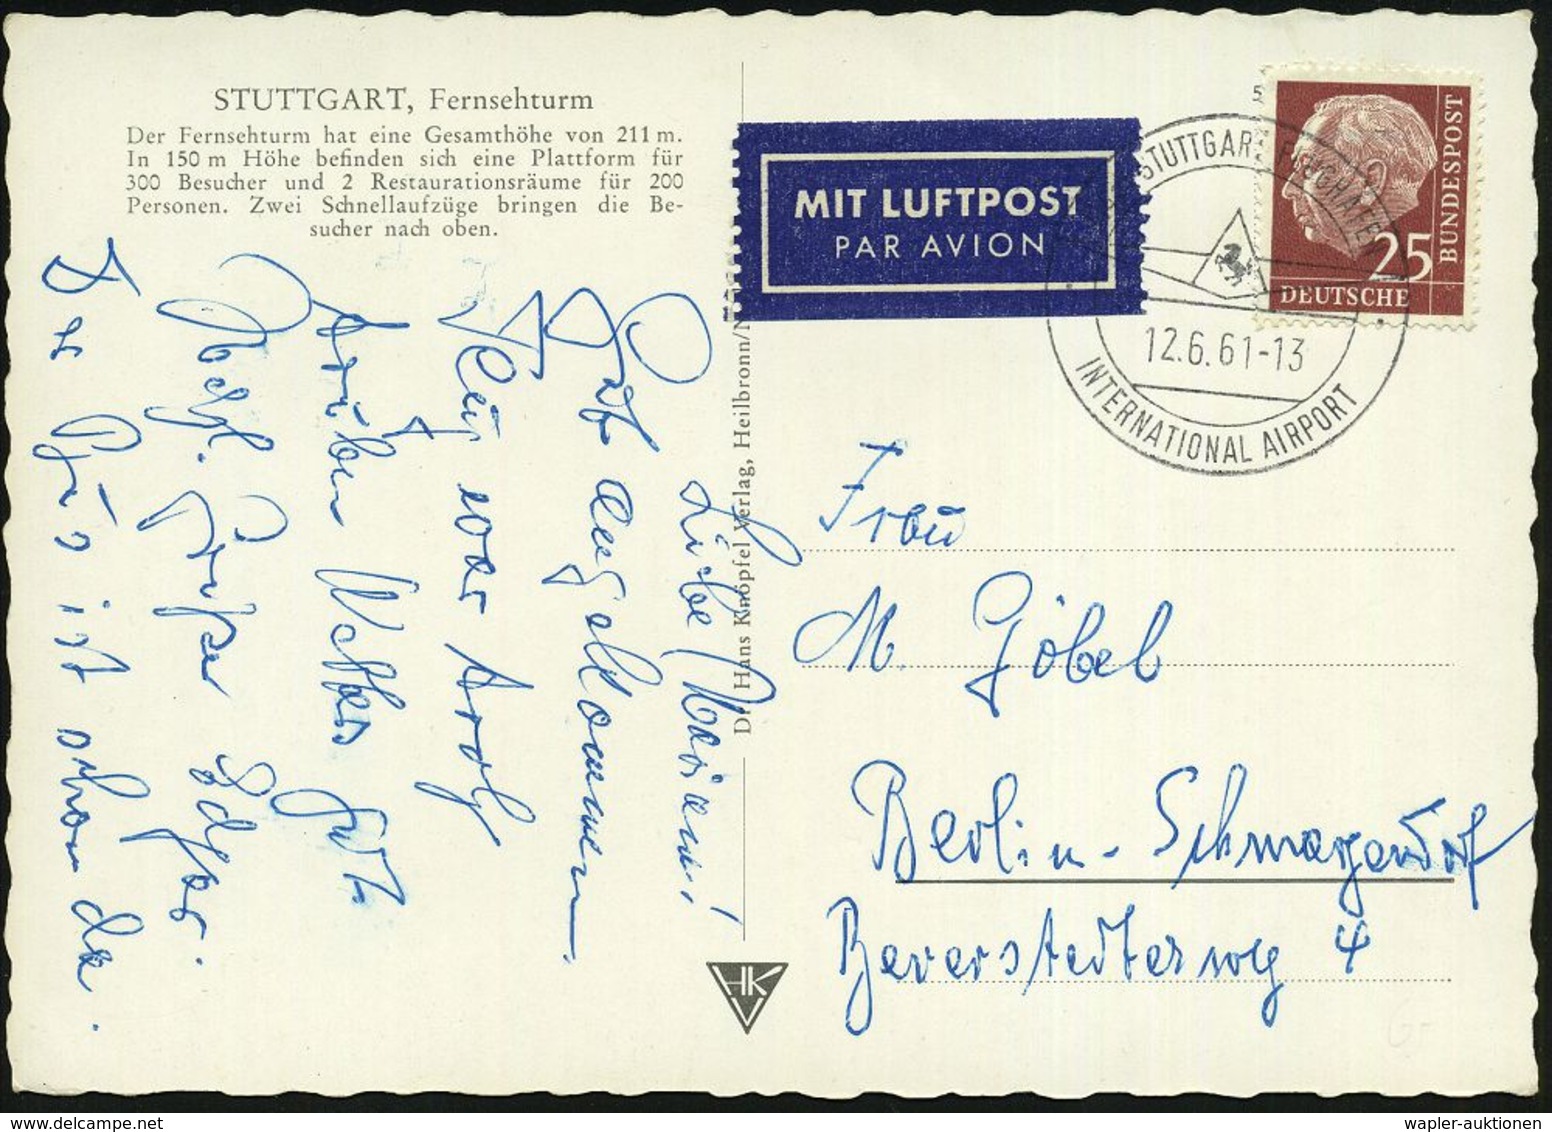 STUTTGART, Fernsehturm
Der Fernsehturm hat eine Gesamthöhe von 211 m.
In 150 m Höhe befinden sich eine Plattform für
300 Besucher und 2 Restaurationsräume für 200
Personen. Zwei Schnellaufzüge bringen die Be-
sucher nach oben.
Liebe
Gut angekommen.
Flug war
drüben Wetter gut.
Herzl. Grüße
ist schon da.
Dr. Hans Knöpfel Verlag, Heilbronn/N
HKV
MIT LUFTPOST
PAR AVION
STUTTGART FLUGHAFEN
12.6.61-13
INTERNATIONAL AIRPORT
25
DEUTSCHE
BUNDESPOST
Frau
M. Göbel
Berlin-Schmargendorf
Beverstedterweg 4
wapler-auktionen